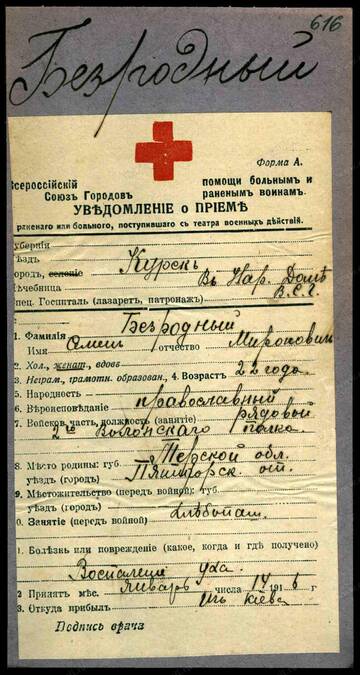 616
Безродный
Форма А.
Всероссійскій
Союзъ Городовъ
помощи больнымъ и
раненымъ воинамъ.
УВѢДОМЛЕНІЕ о ПРІЕМѢ
раненаго или больного, поступившаго съ театра военныхъ дѣйствій.
губерніи
ѣздъ
ородъ, селеніе Курскъ
ѣчебница Въ Нар. Домѣ
пец. Госпиталь (лазаретъ, патронажъ) В.С.Г.
1. Фамилія Безродный
Имя отчество Мироновичъ
2. Хол., женат., вдовъ
3. Неграм., грамотн. образован., 4. Возрастъ 22 года
5. Народность
6. Вѣроисповѣданіе православный
7. Войсков. часть, должность (занятіе) рядовой
2го полка
8. Мѣсто родины: губ. Терской обл.
уѣздъ (городъ) Пятигорск. от.
9. Мѣстожительство (передъ войной): губ.
уѣздъ (городъ)
0. Занятіе (передъ войной) хлѣбопаш.
1. Болѣзнь или поврежденіе (какое, когда и гдѣ получено)
уха.
2 Принятъ мѣс. январь числа 14 1916 г
3. Откуда прибылъ изъ Кіева
Подпись врача